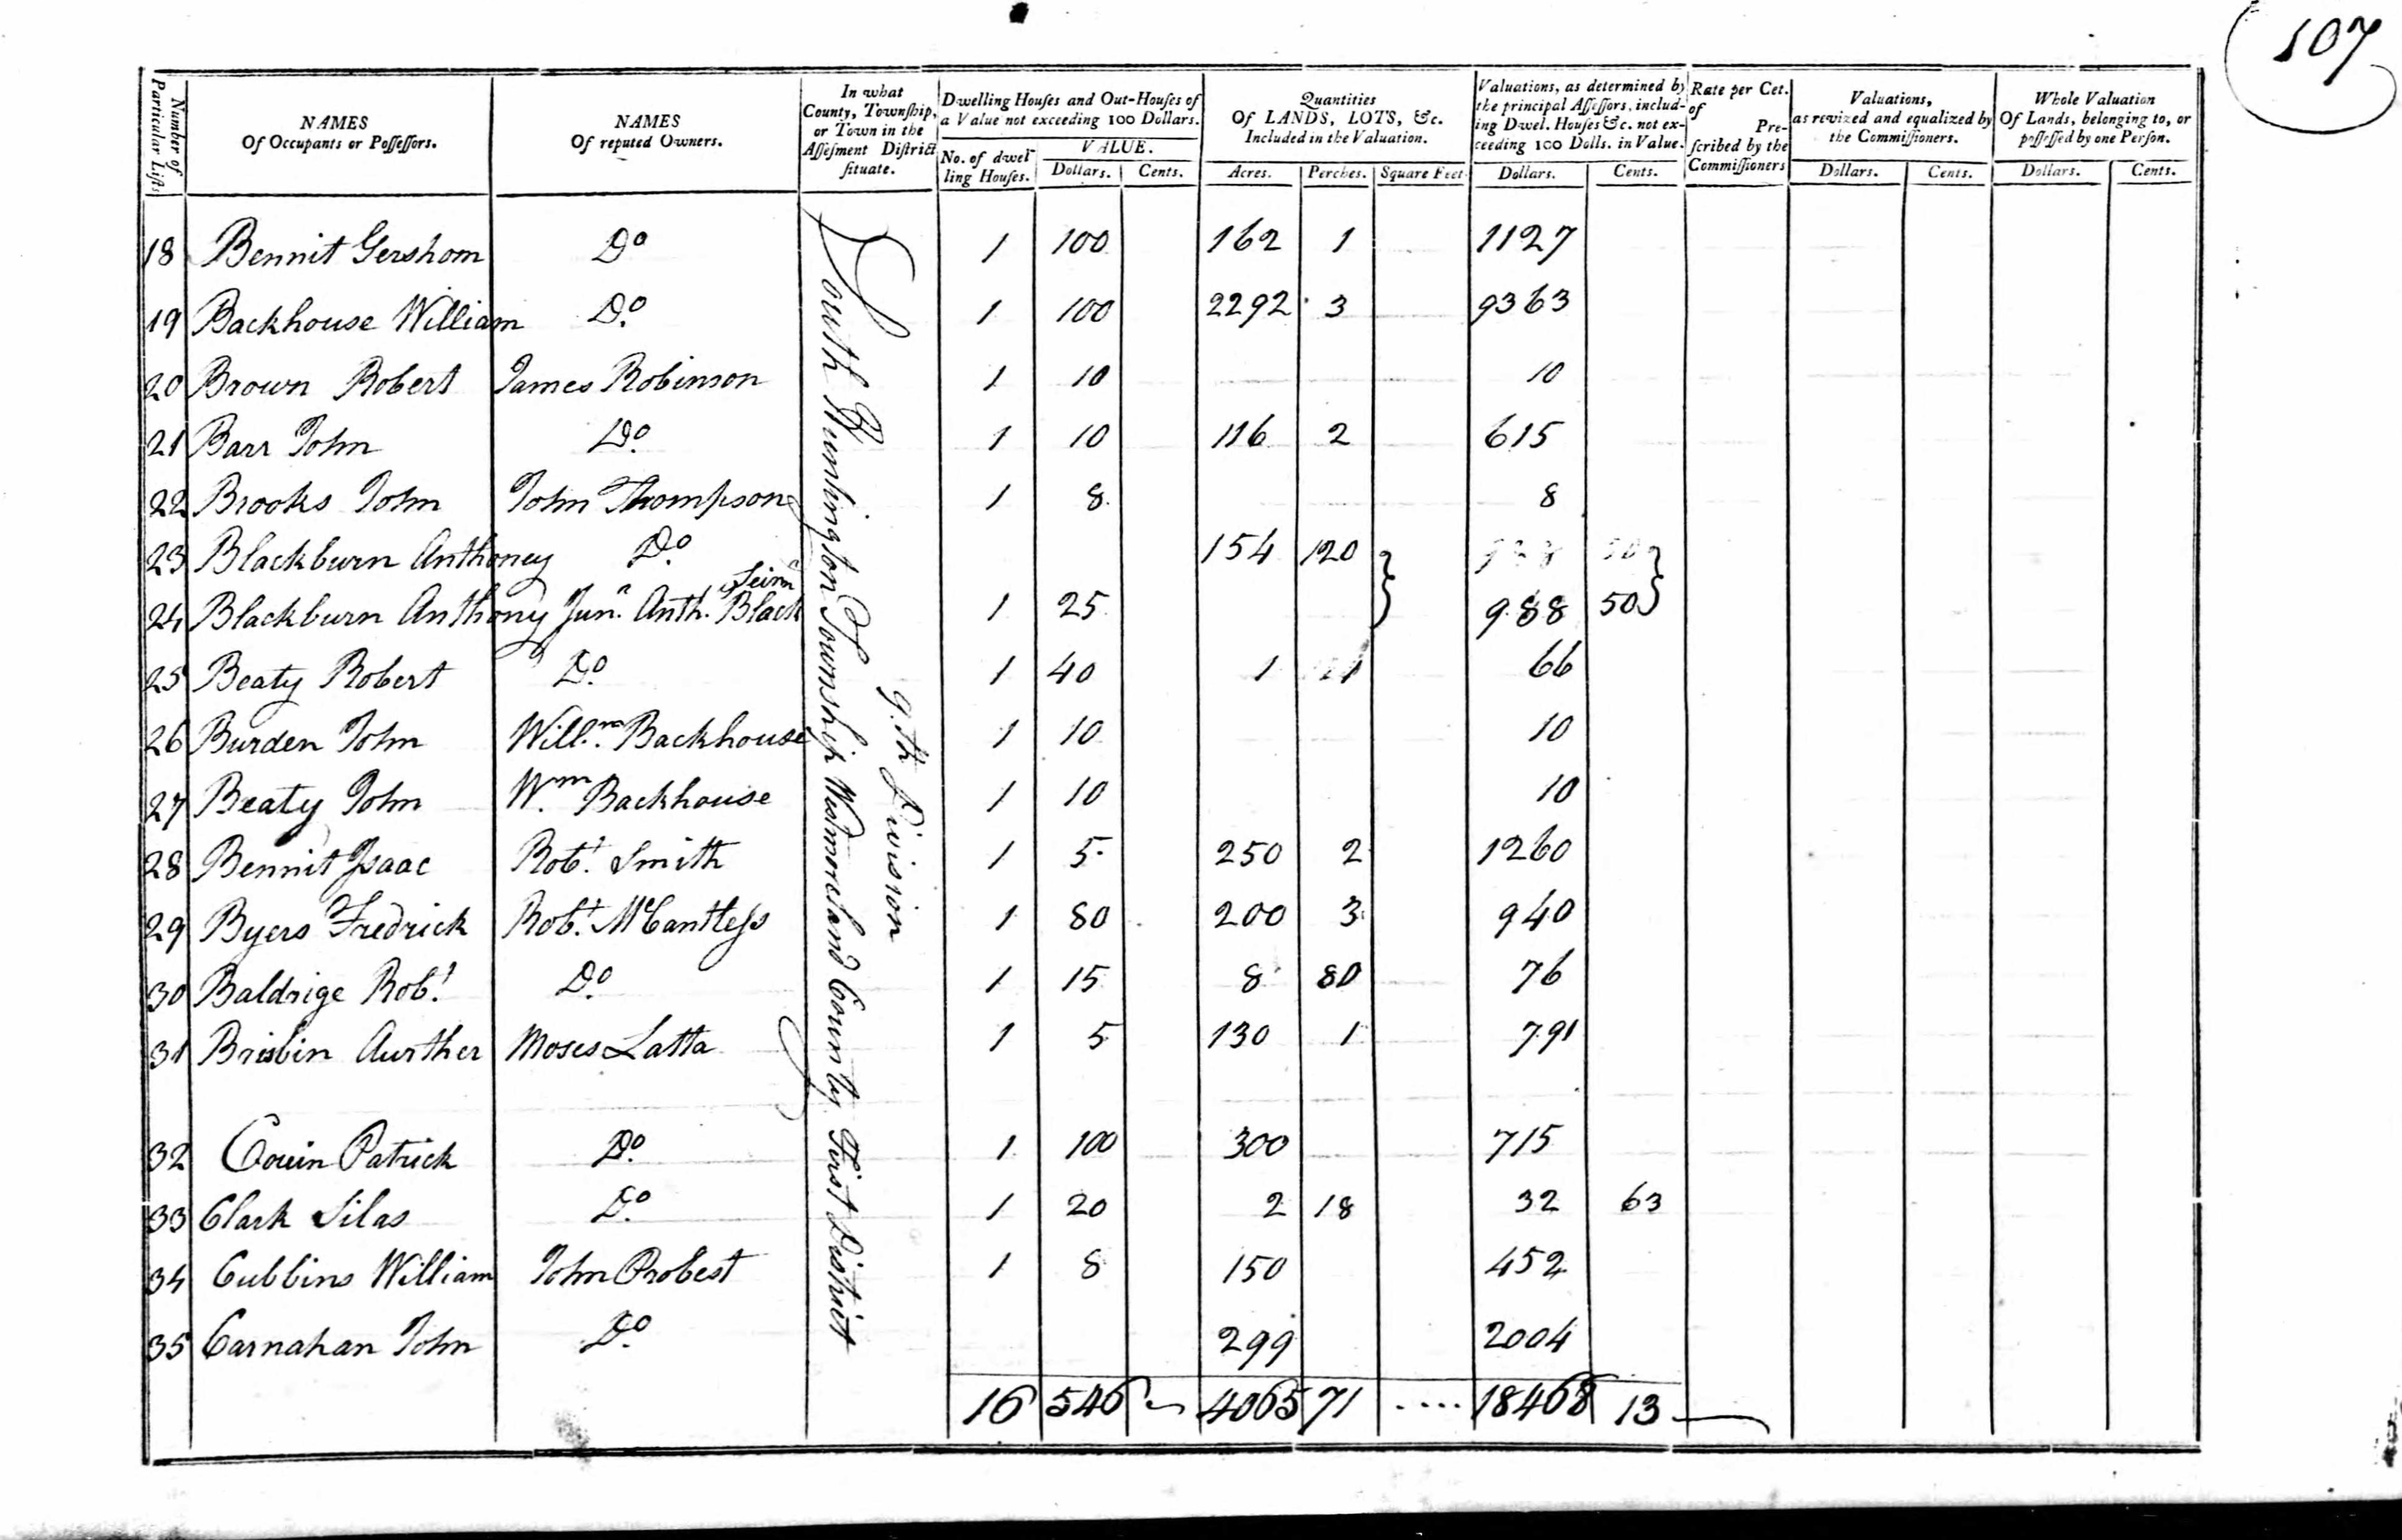 107
Number of Particular Lists
NAMES Of Occupants or Possessors.
NAMES Of reputed Owners.
In what County, Township, or Town in the Assesment District situate.
Dwelling Houses and Out-Houses of a Value not exceeding 100 Dollars.
No. of dwelling Houses.
VALUE.
Dollars. Cents.
Quantities Of LANDS, LOTS, &c. Included in the Valuation.
Acres. Perches. Square Feet
Valuations, as determined by the principal Assessors, including Dwel. Houses &c. not exceeding 100 Dolls. in Value.
Dollars. Cents.
Rate per Cet. of Prescribed by the Commissioners
Valuations, as revized and equalized by the Commissioners.
Dollars. Cents.
Whole Valuation Of Lands, belonging to, or possessed by one Person.
Dollars. Cents.
South Huntington Township Westmoreland County First District
9.th Division
18 Bennit Gershom Do 1 100 162 1 1127
19 Backhouse William Do. 1 100 2292 3 9363
20 Brown Robert James Robinson 1 10 10
21 Barr John Do. 1 10 116 2 615
22 Brooks John John Thompson 1 8 8
23 Blackburn Anthoney Do. 154 120
24 Blackburn Anthony Junr. Anth. Black Seinr 1 25 988 50
25 Beaty Robert Do. 1 40 1 66
26 Burden John Willm. Backhouse 1 10 10
27 Beaty John Wm. Backhouse 1 10 10
28 Bennit Isaac Robt. Smith 1 5 250 2 1260
29 Byers Fredrick Robt. McCantless 1 80 200 3 940
30 Baldrige Robt. Do. 1 15 8 80 76
31 Brisbin Aurther Moses Latta 1 5 130 1 791
32 Couin Patrick Do. 1 100 300 715
33 Clark Silas Do. 1 20 2 18 32 63
34 Cubbins William John Probest 1 8 150 452
35 Carnahan John Do. 299 2004
16 546 4065 71 .... 18468 13